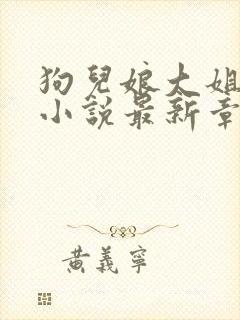 狗兒娘大姐
小說最新章
黃義寧